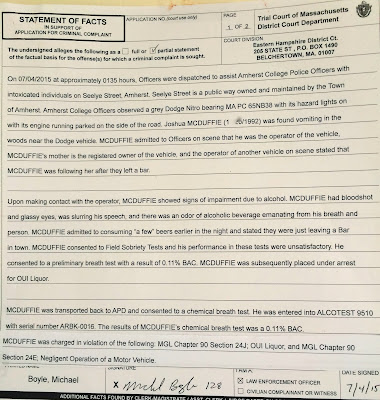 STATEMENT OF FACTS
IN SUPPORT OF
APPLICATION FOR CRIMINAL COMPLAINT
APPLICATION NO. (court use only)
PAGE
1 of 2
Trial Court of Massachusetts
District Court Department
The undersigned alleges the following as a full or partial statement
of the factual basis for the offense(s) for which a criminal complaint is sought.
COURT DIVISION
Eastern Hampshire District Ct.
205 STATE ST, P.O. BOX 1490
BELCHERTOWN, MA, 01007
On 07/04/2015 at approximately 0135 hours, Officers were dispatched to assist Amherst College Police Officers with
intoxicated individuals on Seelye Street, Amherst. Seelye Street is a public way owned and maintained by the Town
of Amherst. Amherst College Officers observed a grey Dodge Nitro bearing MA PC 65NB38 with its hazard lights on
with its engine running parked on the side of the road. Joshua MCDUFFIE (1 /1992) was found vomiting in the
woods near the Dodge vehicle. MCDUFFIE admitted to Officers on scene that he was the operator of the vehicle.
MCDUFFIE's mother is the registered owner of the vehicle, and the operator of another vehicle on scene stated that
MCDUFFIE was following her after they left a bar.
Upon making contact with the operator, MCDUFFIE showed signs of impairment due to alcohol. MCDUFFIE had bloodshot
and glassy eyes, was slurring his speech, and there was an odor of alcoholic beverage emanating from his breath and
person. MCDUFFIE admitted to consuming "a few" beers earlier in the night and stated they were just leaving a Bar
in town. MCDUFFIE consented to Field Sobriety Tests and his performance in these tests were unsatisfactory. He
consented to a preliminary breath test with a result of 0.11% BAC. MCDUFFIE was subsequently placed under arrest
for OUI Liquor.
MCDUFFIE was transported back to APD and consented to a chemical breath test. He was entered into ALCOTEST 9510
with serial number ARBK-0016. The results of MCDUFFIE's chemical breath test was a 0.11% BAC.
MCDUFFIE was charged in violation of the following: MGL Chapter 90 Section 24J; OUI Liquor, and MGL Chapter 90
Section 24E; Negligent Operation of a Motor Vehicle.
SIGNATURE
I AM A:
DATE SIGNED
Boyle, Michael
X Michl Boyle 128
LAW ENFORCEMENT OFFICER
CIVILIAN COMPLAINANT OR WITNESS
7/4/15
ADDITIONAL FACTS FOUND BY CLERK-MAGISTRATE / ASST. CLERK /